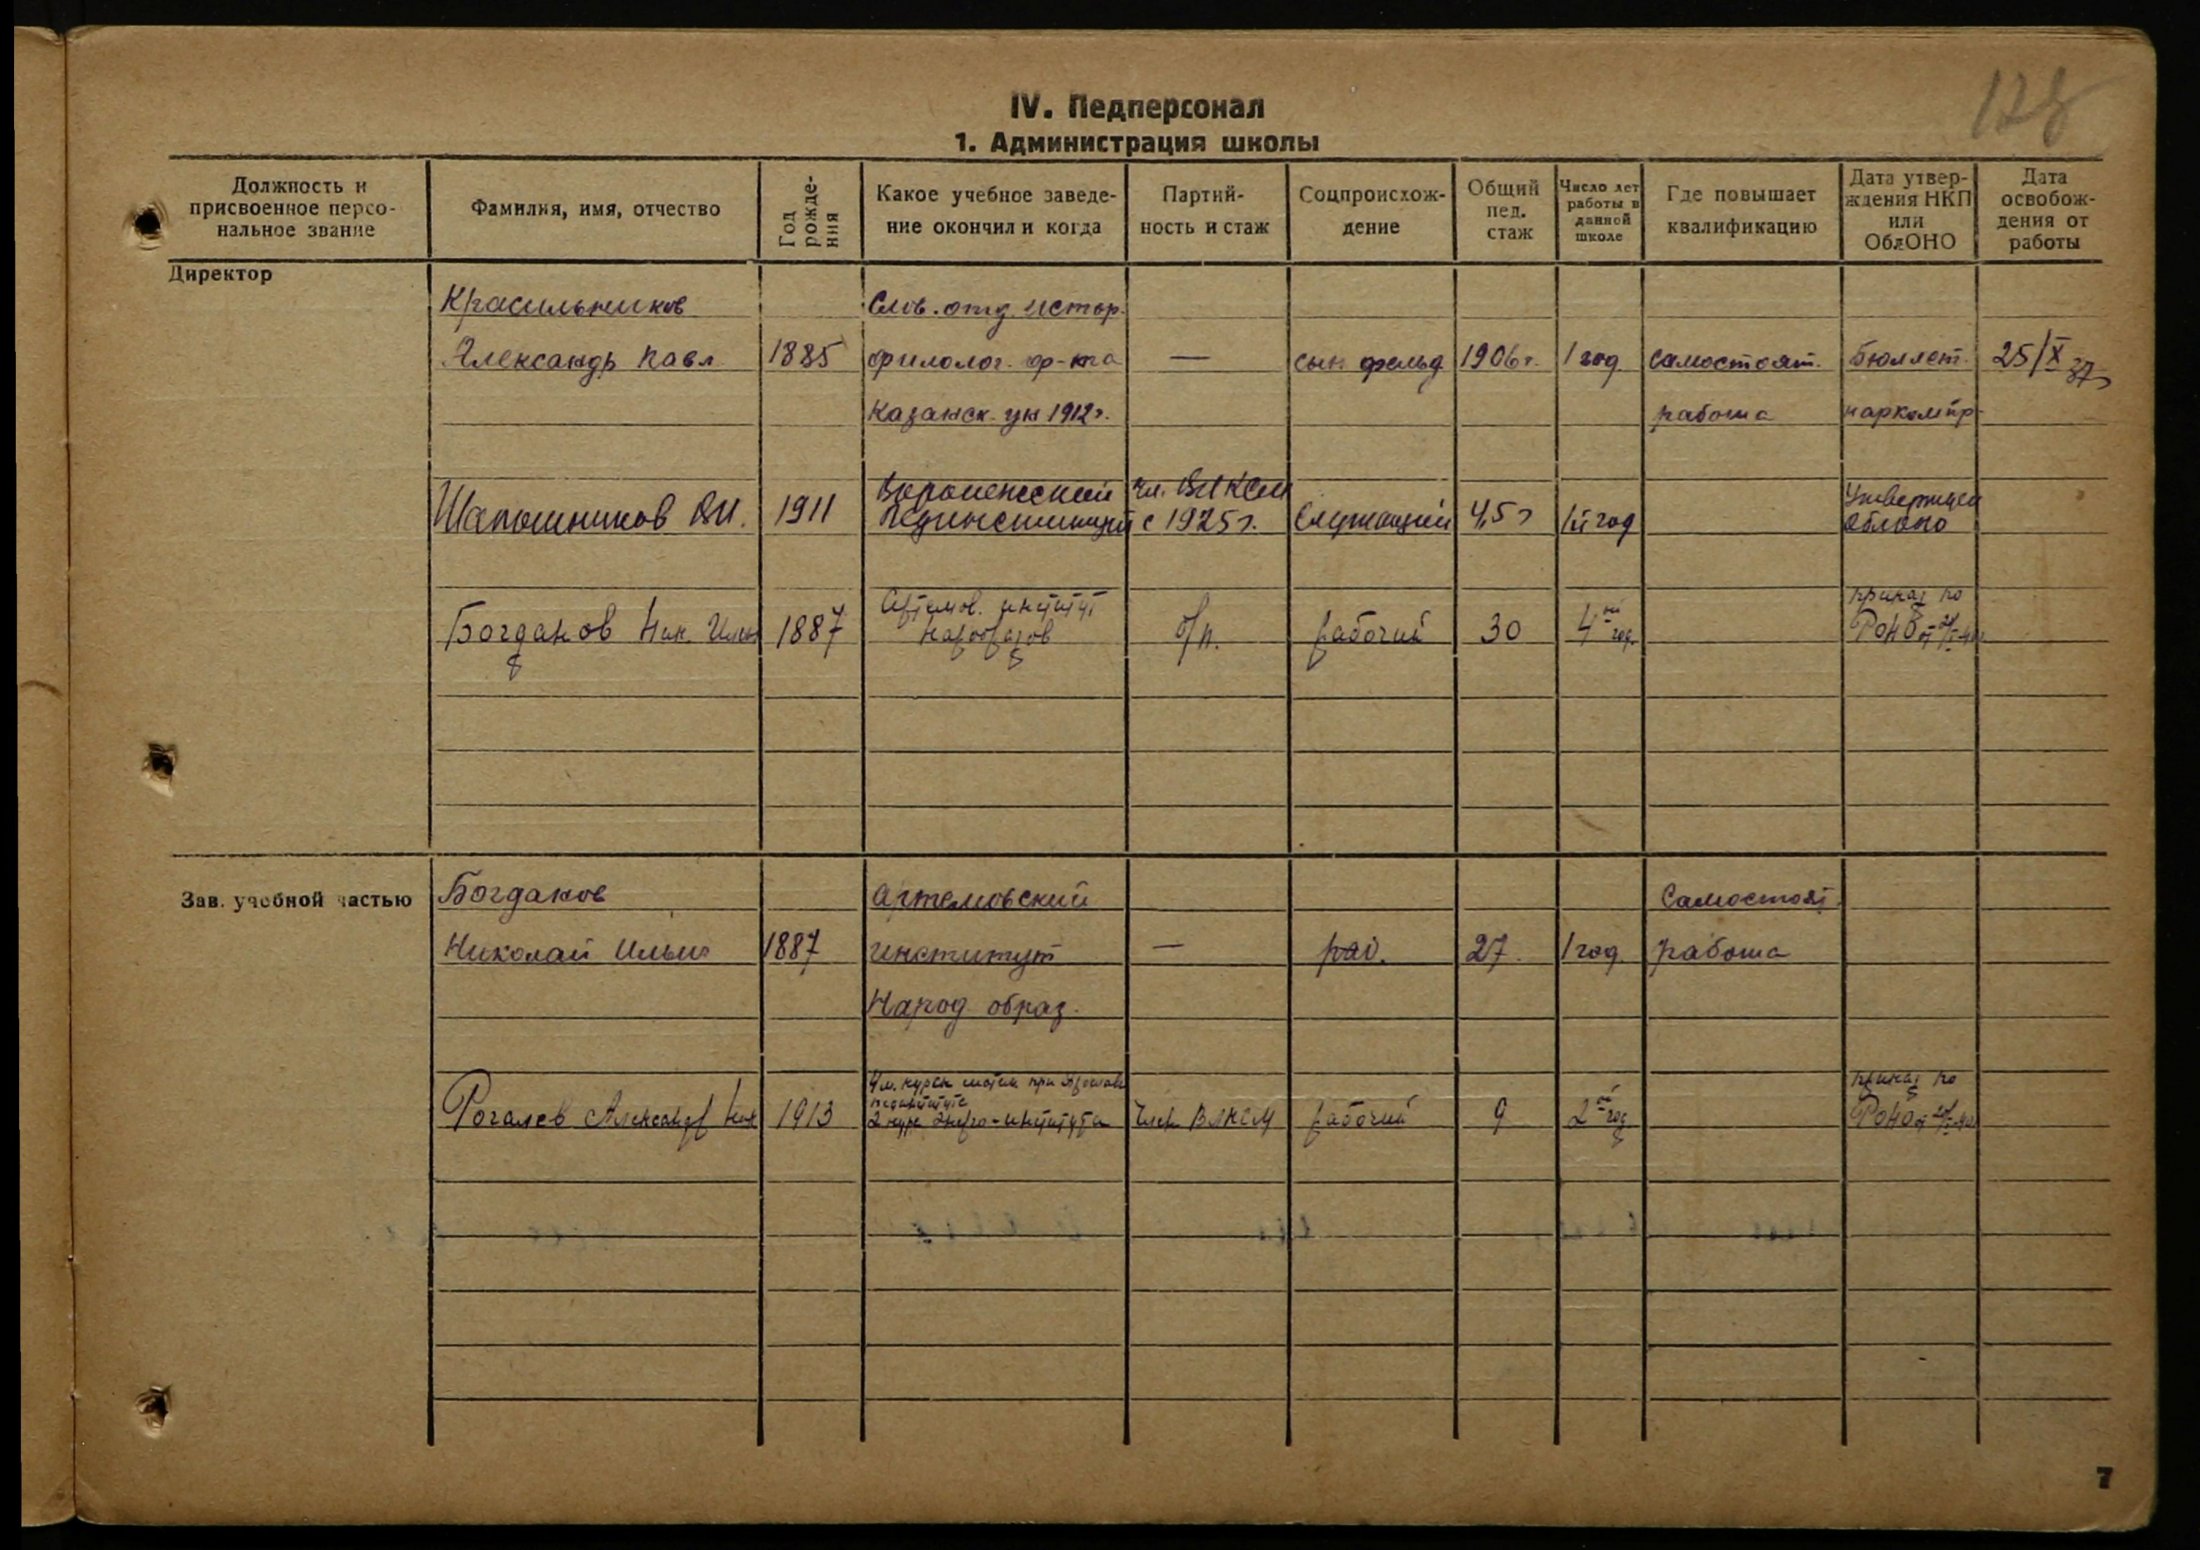 128
IV. Педперсонал
1. Администрация школы
Должность и присвоенное персо-нальное звание
Фамилия, имя, отчество
Год рожде-ния
Какое учебное заведе-ние окончил и когда
Партий-ность и стаж
Соцпроисхож-дение
Общий пед. стаж
Число лет работы в данной школе
Где повышает квалификацию
Дата утвер-ждения НКП или ОблОНО
Дата освобож-дения от работы
Директор
Красильников Слов. отд. истор.
Александр Павл. 1885 филолог. ф-та — сын фельд 1906 г. 1 год самостоят. Бюллет. 25/X 37
Казанск. ун 1912 г. работа наркомпр.
Воронежский чл. ВЛКСМ
Шапошников 1911 Пединститут с 1925 г. Служащий 4,5 г 1й год облоно
Артемов. институт приказ по
Богданов Ник. Ильич 1887 Наробразов б/п. рабочий 30 4ый год. РОНО от
Зав. учебной частью
Богданов Артемовский Самостоят.
Николай Ильич 1887 институт — раб. 27. 1 год работа
Народ. образ.
приказ по
Рогалев Александр Ник 1913 2 курс Энерго-института Член ВЛКСМ рабочий 9 2ой год РОНО от
7